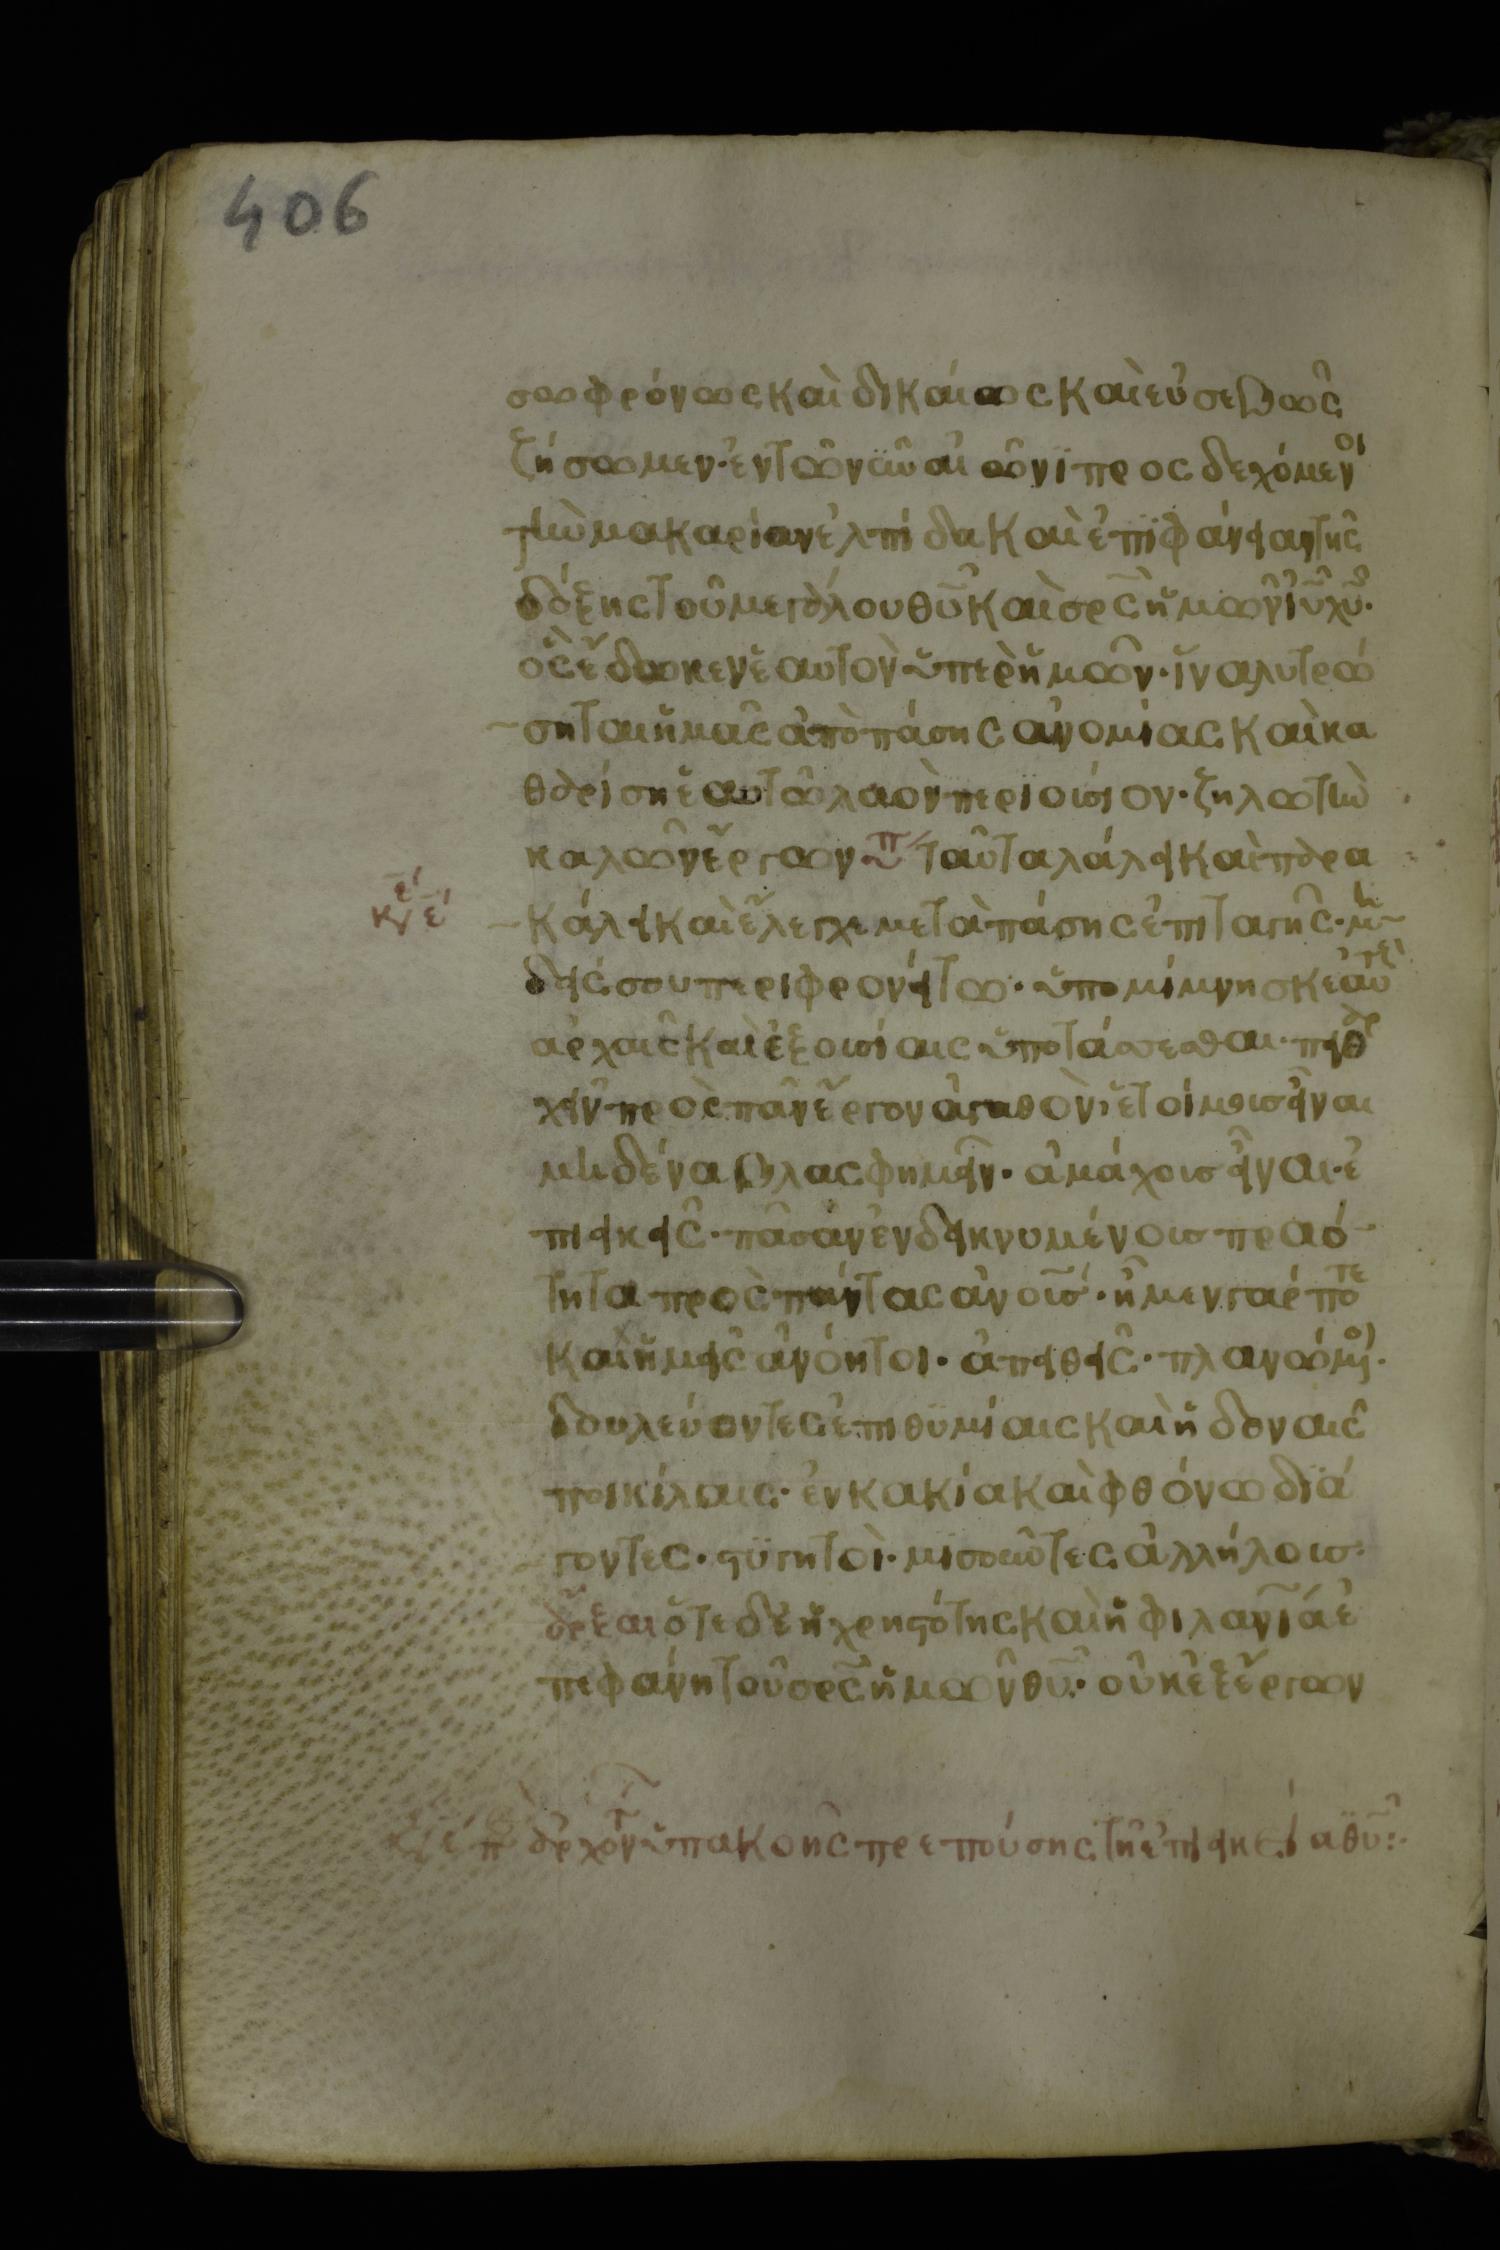 406
σωφρόνως καὶ δικαίως καὶ εὐσεβῶς
ζήσωμεν· ἐν τῶ νῦν αἰῶνϊ προσδεχόμενοι
τὴν μακαρίαν ἐλπίδα καὶ ἐπϊφάνειαν τῆς
δόξης τοῦ μεγάλου θ̅υ̅ καὶ σρ̅ς ἡμῶν ἰ̅υ̅ χ̅υ̅·
ὃς ἔδωκεν ἑαυτὸν ὑπὲρ ἡμῶν· ἵνα λυτρώ
σηται ἡμᾶς ἀπὸ πάσης ἀνομίας καὶ κα
θαρίση ἑαυτῶ λαὸν περιούσιον· ζηλωτὴν
καλῶν ἔργων ταῦτα λάλει καὶ παρα
κάλει καὶ ἔλεγχε μετὰ πάσης ἐπιταγῆς· μη
κ,ε ε
δείς σου περιφρονείτω· ὑπομίμνησκε αὐτοὺς
ἀρχαῖς καὶ ἐξουσίαις ὑποτάσσεσθαι· πειθαρ
χεῖν· πρὸς πᾶν ἔργον ἀγαθὸν, ἑτοίμους εἶναι
μηδένα βλασφημεῖν· ἀμάχους εἶναι· ἐ
πιεικεῖς· πᾶσαν ἐνδεικνυμένους πραό
τητα πρὸς πάντας ἀν̅ο̅υ̅ς· ἦμεν γάρ ποτε
καὶ ἡμεῖς ἀνόητοι· ἀπειθεῖς· πλανώμενοι·
δουλεύοντες ἐπιθϋμίαις καὶ ἡδοναῖς
ποικίλαις· ἐν κακία καὶ φθόνω δϊά
γοντες· στϋγητοὶ· μϊσοῦντες ἀλλήλους·
ἄρξαι ὅτε δὲ ἡ χρηστότης καὶ ἡ φιλαν̅ί̅α ἐ
πεφάνη τοῦ σρ̅ς ἡμῶν θ̅υ̅· οὐκ ἐξ ἔργων
ἀρχόντων ὑπακοῆς πρεπούσης τῆ ἐπιεικεία θ̅υ̅:·